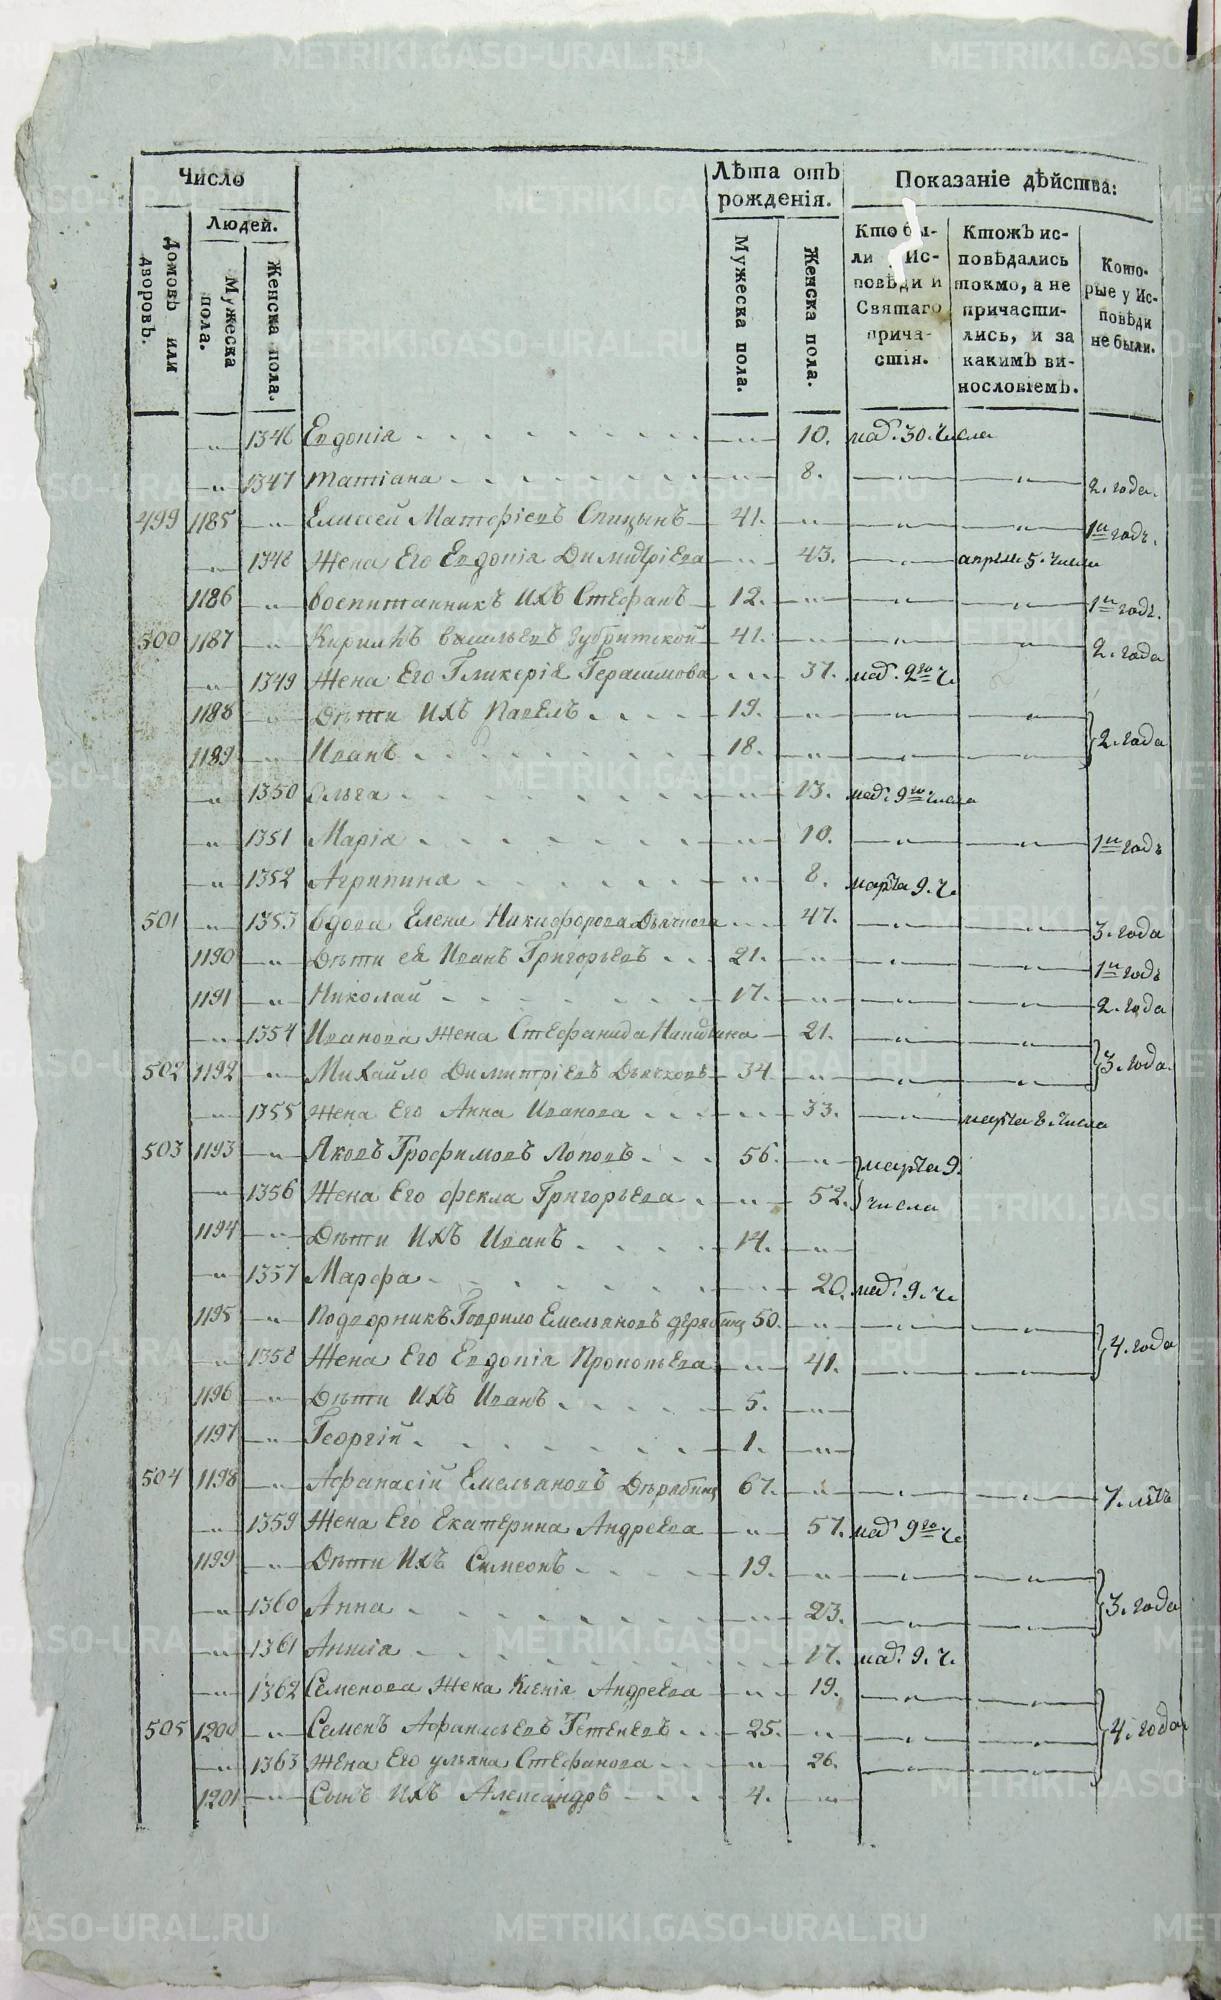 Число
Лѣта отъ рожденія.
Показаніе дѣйства:
Людей.
Домовъ или дворовъ.
Мужеска пола.
Женска пола.
Мужеска пола.
Женска пола.
Кто бы-
ли у Ис-
повѣди и
Святаго
прича-
стія.
Ктожъ ис-
повѣдались
токмо, а не
причасти-
лись, и за
какимъ ви-
нословіемъ.
Кото-
рые у Ис-
повѣди
не были.
1346 Евдокія 10. маѣ. 30. числа
1347 Татіана 8. 2. года.
499 1185 Елисей Матфіевъ Спицынъ 41. 1й годъ.
1348 Жена Его Евдокія Димитріева 43. апрѣля 5. числа
1186 воспитанникъ ихъ Стефанъ 12. 1й годъ.
500 1187 Кирилъ васильевъ Зубритской 41. 2. года
1349 Жена Его Гликерія Герасимова 37. маѣ. 9го ч.
1188 Дѣти ихъ Павелъ 19.
1189 Иванъ 18. 2. года
1350 Ольга 13. маѣ. 9го числа
1351 Марія 10. 1й годъ
1352 Агрипина 8. марта 9. ч.
501 1353 вдова Елена Никифорова Дьячкова 47. 3. года
1190 Дѣти ея Иванъ Григорьевъ 21. 1й годъ
1191 Николай 17. 2. года
1354 Иванова жена Стефанида 21.
502 1192 Михайло Димитріевъ Дьячковъ 34. 3. года.
1355 Жена Его Анна Иванова 33. марта 8. числа
503 1193 Яковъ Трофимовъ Поповъ 56. марта 9.
1356 Жена Его Фекла Григорьева 52. числа
1194 Дѣти ихъ Иванъ 14.
1357 Марфа 20. маѣ. 9. ч.
1195 Подворникъ Гаврило Емельяновъ 50.
1358 Жена Его Евдокія Прокопьева 41. 4. года
1196 Дѣти ихъ Иванъ 5.
1197 Георгій 1.
504 1198 Афанасій Емельяновъ Дерябинъ 67. 7. лѣтъ
1359 Жена Его Екатерина Андреева 57. маѣ. 9го ч.
1199 Дѣти ихъ Симеонъ 19.
1360 Анна 23. 3. года
1361 Анисія 17. маѣ. 9. ч.
1362 Семенова Жена Ксенія Андреева 19.
505 1200 Семенъ Афанасьевъ 25. 4. года
1363 Жена Его ульяна Стефанова 26.
1201 Сынъ ихъ Александръ 4.
METRIKI.GASO-URAL.RU